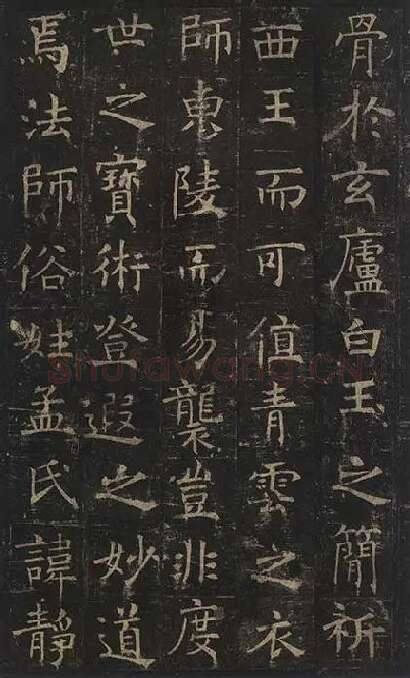 骨於玄廬白玉之簡祈
西王而可值青雲之衣
師惠陵而易襲豈非度
世之寶術登遐之妙道
焉法師俗姓孟氏諱靜
shufawang.CN